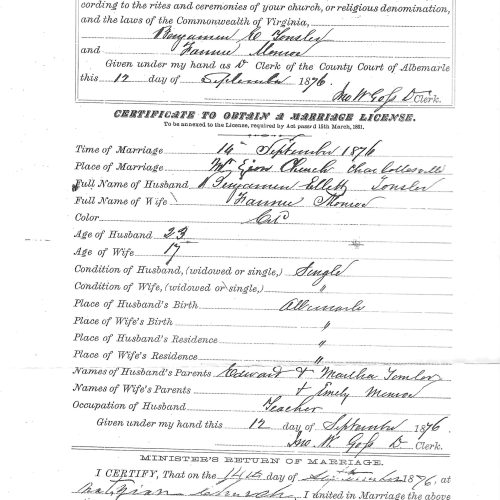 cording to the rites and ceremonies of your church, or religious denomination,
and the laws of the Commonwealth of Virginia,
Benjamin E Tonsler
and Fannie Monroe
Given under my hand as D Clerk of the County Court of Albemarle
this 12 day of September 1876
Jno W Goss D Clerk.
CERTIFICATE TO OBTAIN A MARRIAGE LICENSE.
To be annexed to the License, required by Act passed 15th March, 1861.
Time of Marriage 14 September 1876
Place of Marriage Mt Zion Church Charlottesville
Full Name of Husband Benjamin Tonsler
Full Name of Wife Fannie Monroe
Color Col
Age of Husband 23
Age of Wife 17
Condition of Husband, (widowed or single,) Single
Condition of Wife, (widowed or single,) "
Place of Husband's Birth Albemarle
Place of Wife's Birth "
Place of Husband's Residence "
Place of Wife's Residence "
Names of Husband's Parents Edward & Martha
Names of Wife's Parents & Emily Monroe
Occupation of Husband Teacher
Given under my hand this 12 day of September 1876
Jno W. Goss D. Clerk.
MINISTER'S RETURN OF MARRIAGE.
I CERTIFY, That on the 14th day of September 1876, at
I united in Marriage the above